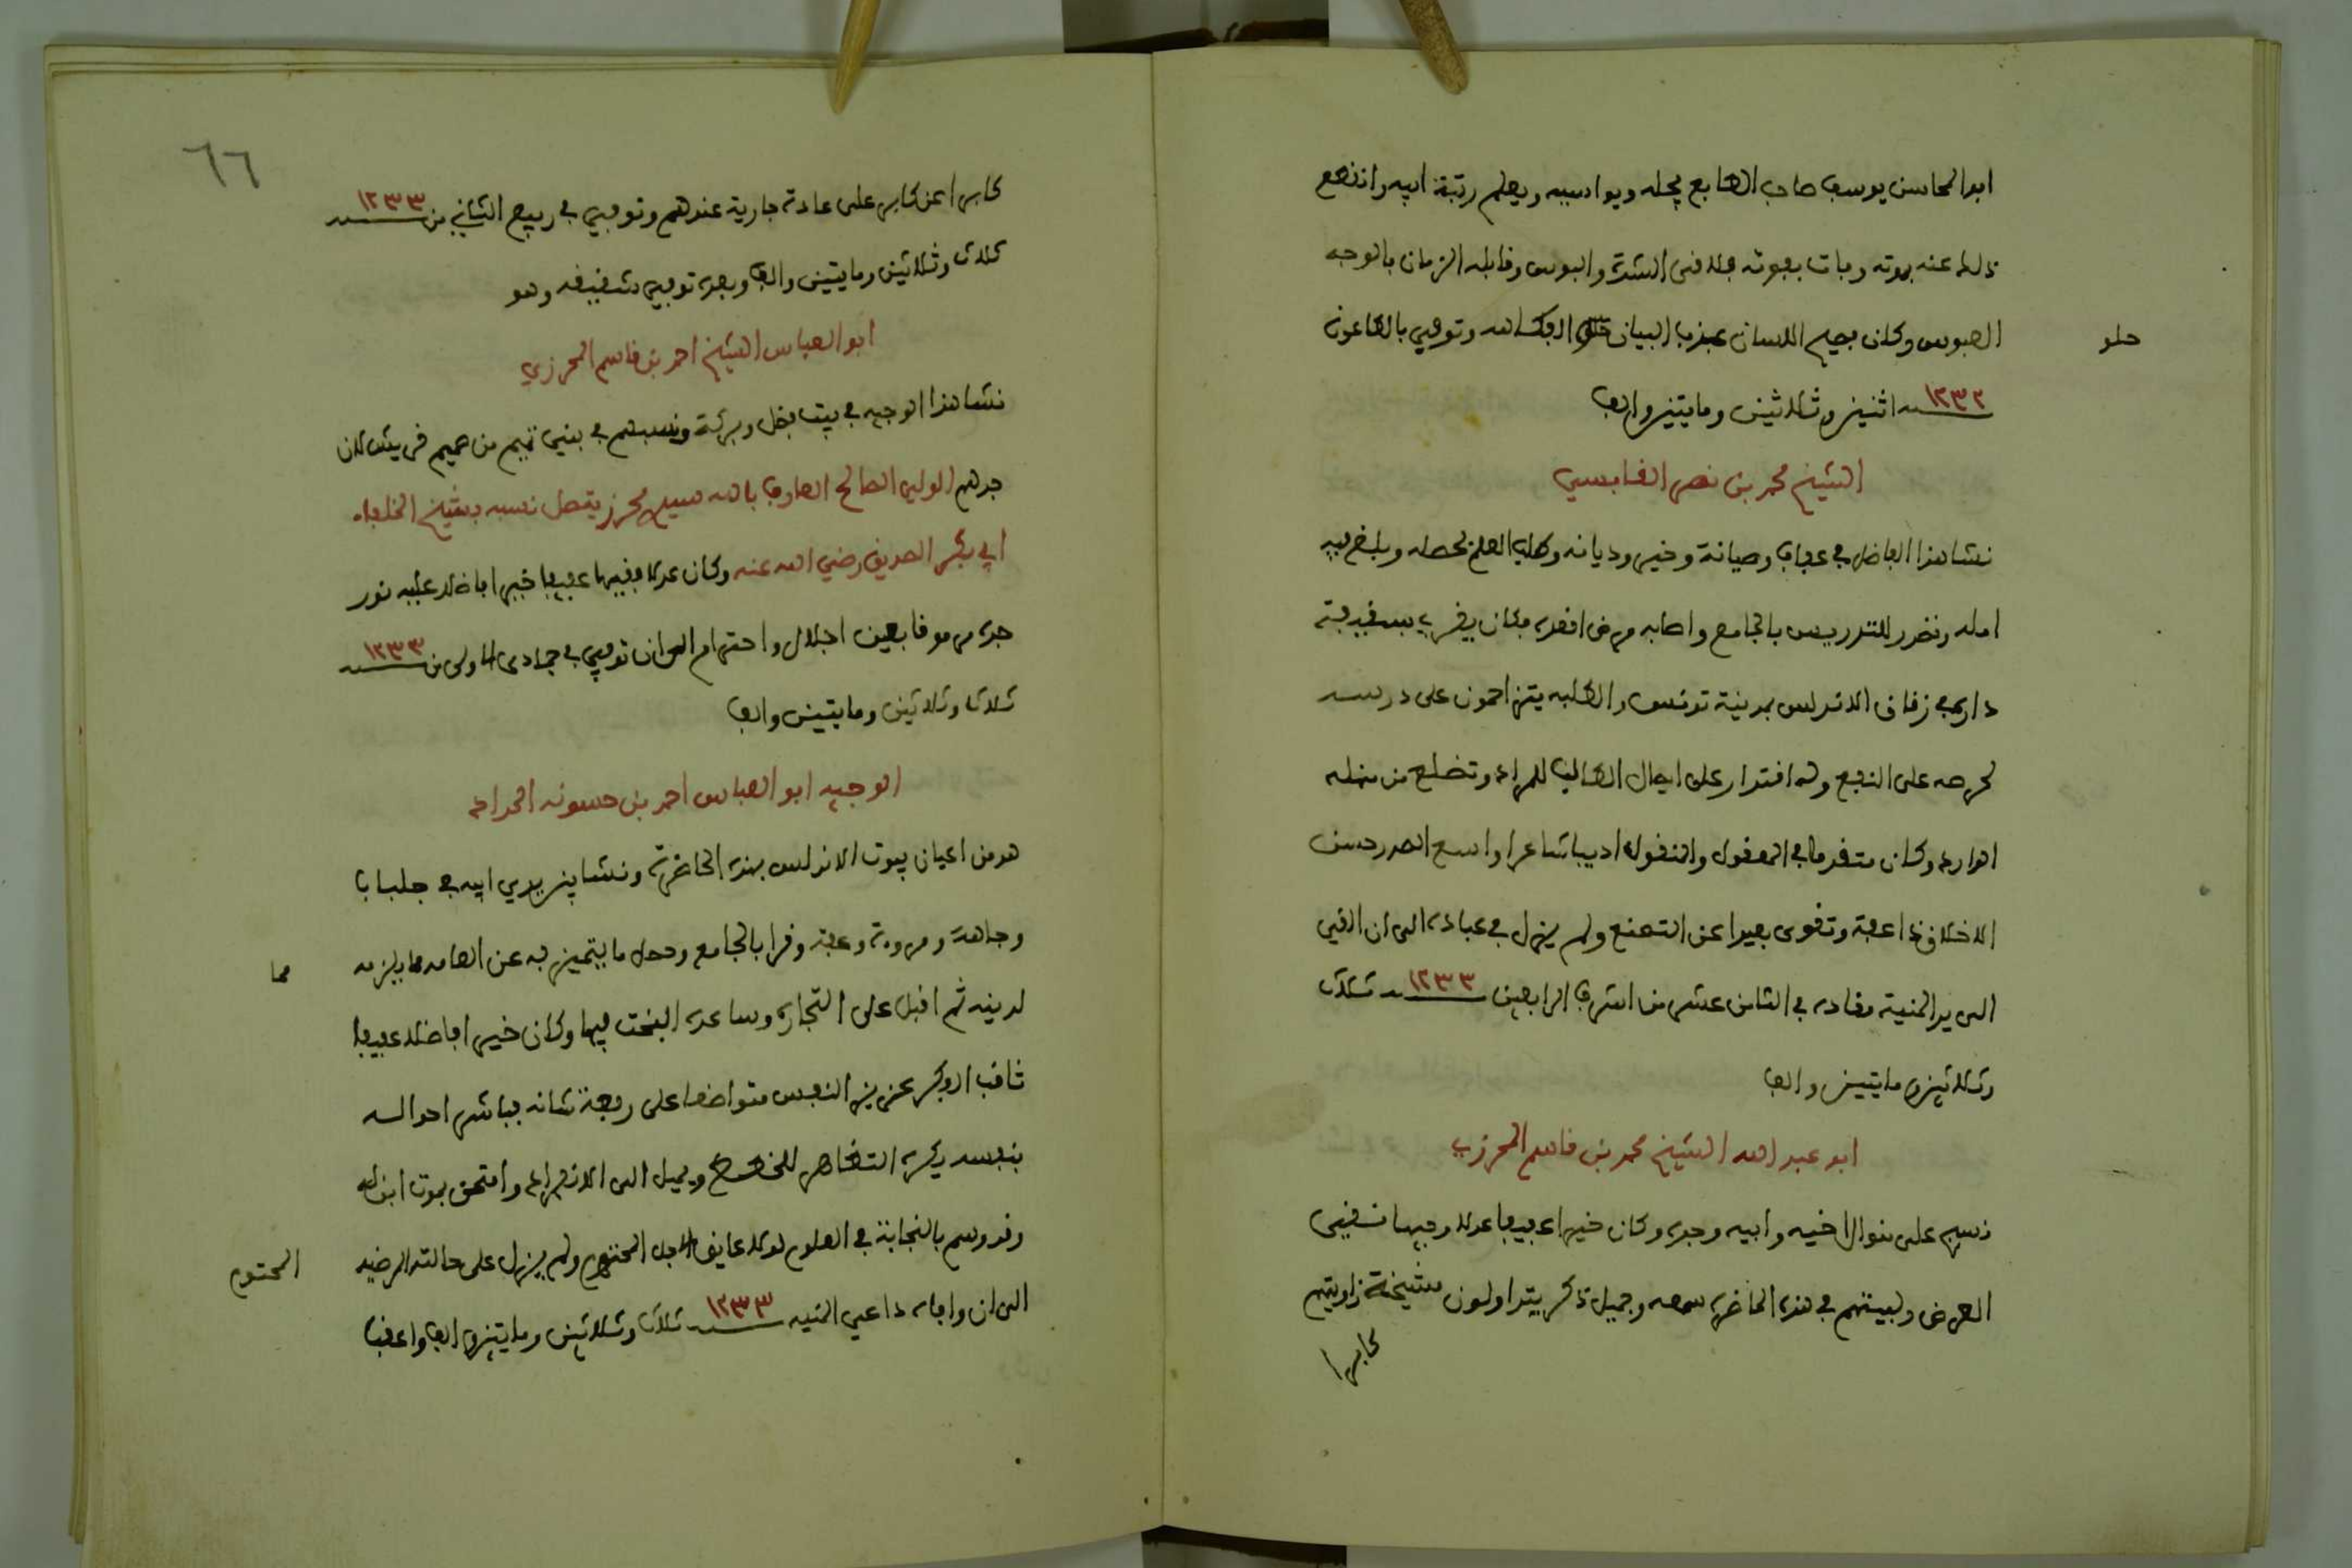 ابو المحاسن يوسف صاحب الطابع يجله ويواسيه ويعلم رتبة ابيه وانقطع
ذلك عنه بموته وبات بعوته مدفنى الشدة والبوس وقابله الزمان بالوجه
العبوس وكان فصيح اللسان عذب البيان الفكاهه وتوفي بالطاعون
حلو
سنة ١٢٣٢ اثنين وثلاثين ومايتين والف
الشيخ محمد بن نصر القابسي
نشا هذا الفاضل في عفاف وصيانة وخير وديانه وطلب العلم فحصله وبلغ فيه
امله وتصدر للتدريس بالجامع واصابه مرض اقعده فكان يقري بسقيفة
داره في زقاق الاندلس بمدينة تونس والطلبه يتزاحمون على درسه
لحرصه على النفع وله اقتدار على ايصال الطالب للمراد وتضلع من منهله
الوارد وكان متقدما في المعقول والمنقول اديبا شاعرا واسع الصدر حسن
الاخلاق ذا عفة وتقوى بعيدا عن التصنع ولم يزل في عباده الى ان القي
الى يد المنية مقاده في الثامن عشر من اشرف الرابعين سنة ١٢٣٣ ثلاث
وثلاثين ومايتين والف
ابو عبد الله الشيخ محمد بن قاسم المحرزي
نسج على منوال اخيه وابيه وجده وكان خيرا عفيفا عدلا وجيها نقي
العرض ولبيتهم في هذه الحاضره سمعه وجميل ذكر يتداولون مشيخة زاويتهم
كابرا
٦٦
كابرا عن كابر على عادة جارية عندهم وتوفي في ربيع الثاني من سنة ١٢٣٣
ثلاث وثلاثين ومايتين والف وبعده توفي شقيقه وهو
ابو العباس الشيخ احمد بن قاسم المحرزي
نشا هذا الوجيه في بيت فضل وبركة ونسبهم في بني تميم من صميم قريش لان
جدهم الولي الصالح العارف بالله سيدي محرز يتصل نسبه بشيخ الخلفاء
ابي بكر الصديق رضي الله عنه وكان عدلا فقيها عفيفا خيرا فاضلا عليه نور
جده مرموقا بعين اجلال واحترام الى ان توفي في جمادى الاولى من سنة ١٢٣٣
ثلاث وثلاثين ومايتين والف
الوجيه ابو العباس احمد بن حسونه الحداد
هو من اعيان بيوت الاندلس بهذه الحاضرة ونشا بين يدي ابيه في جلباب
وجاهة ومروءة وعفة وقرا بالجامع وحصل ما يتميز به عن العامه مما يلزمه
مما
لدينه ثم اقبل على التجاره وساعده البخت فيها وكان خيرا فاضلا عفيفا
ثاقب الفكر عزيز النفس متواضعا على رفعة شانه يباشر احواله
بنفسه يكره التظاهر ويميل الى الانفراد وامتحن بموت ابن له
وقد وسم بالنجابة في العلوم لولا عايق الاجل المحتوم ولم يزل على حالته المرضيه
المحتوم
الى ان وافاه داعي المنيه سنة ١٢٣٣ ثلاث وثلاثين ومايتين والف واعقب